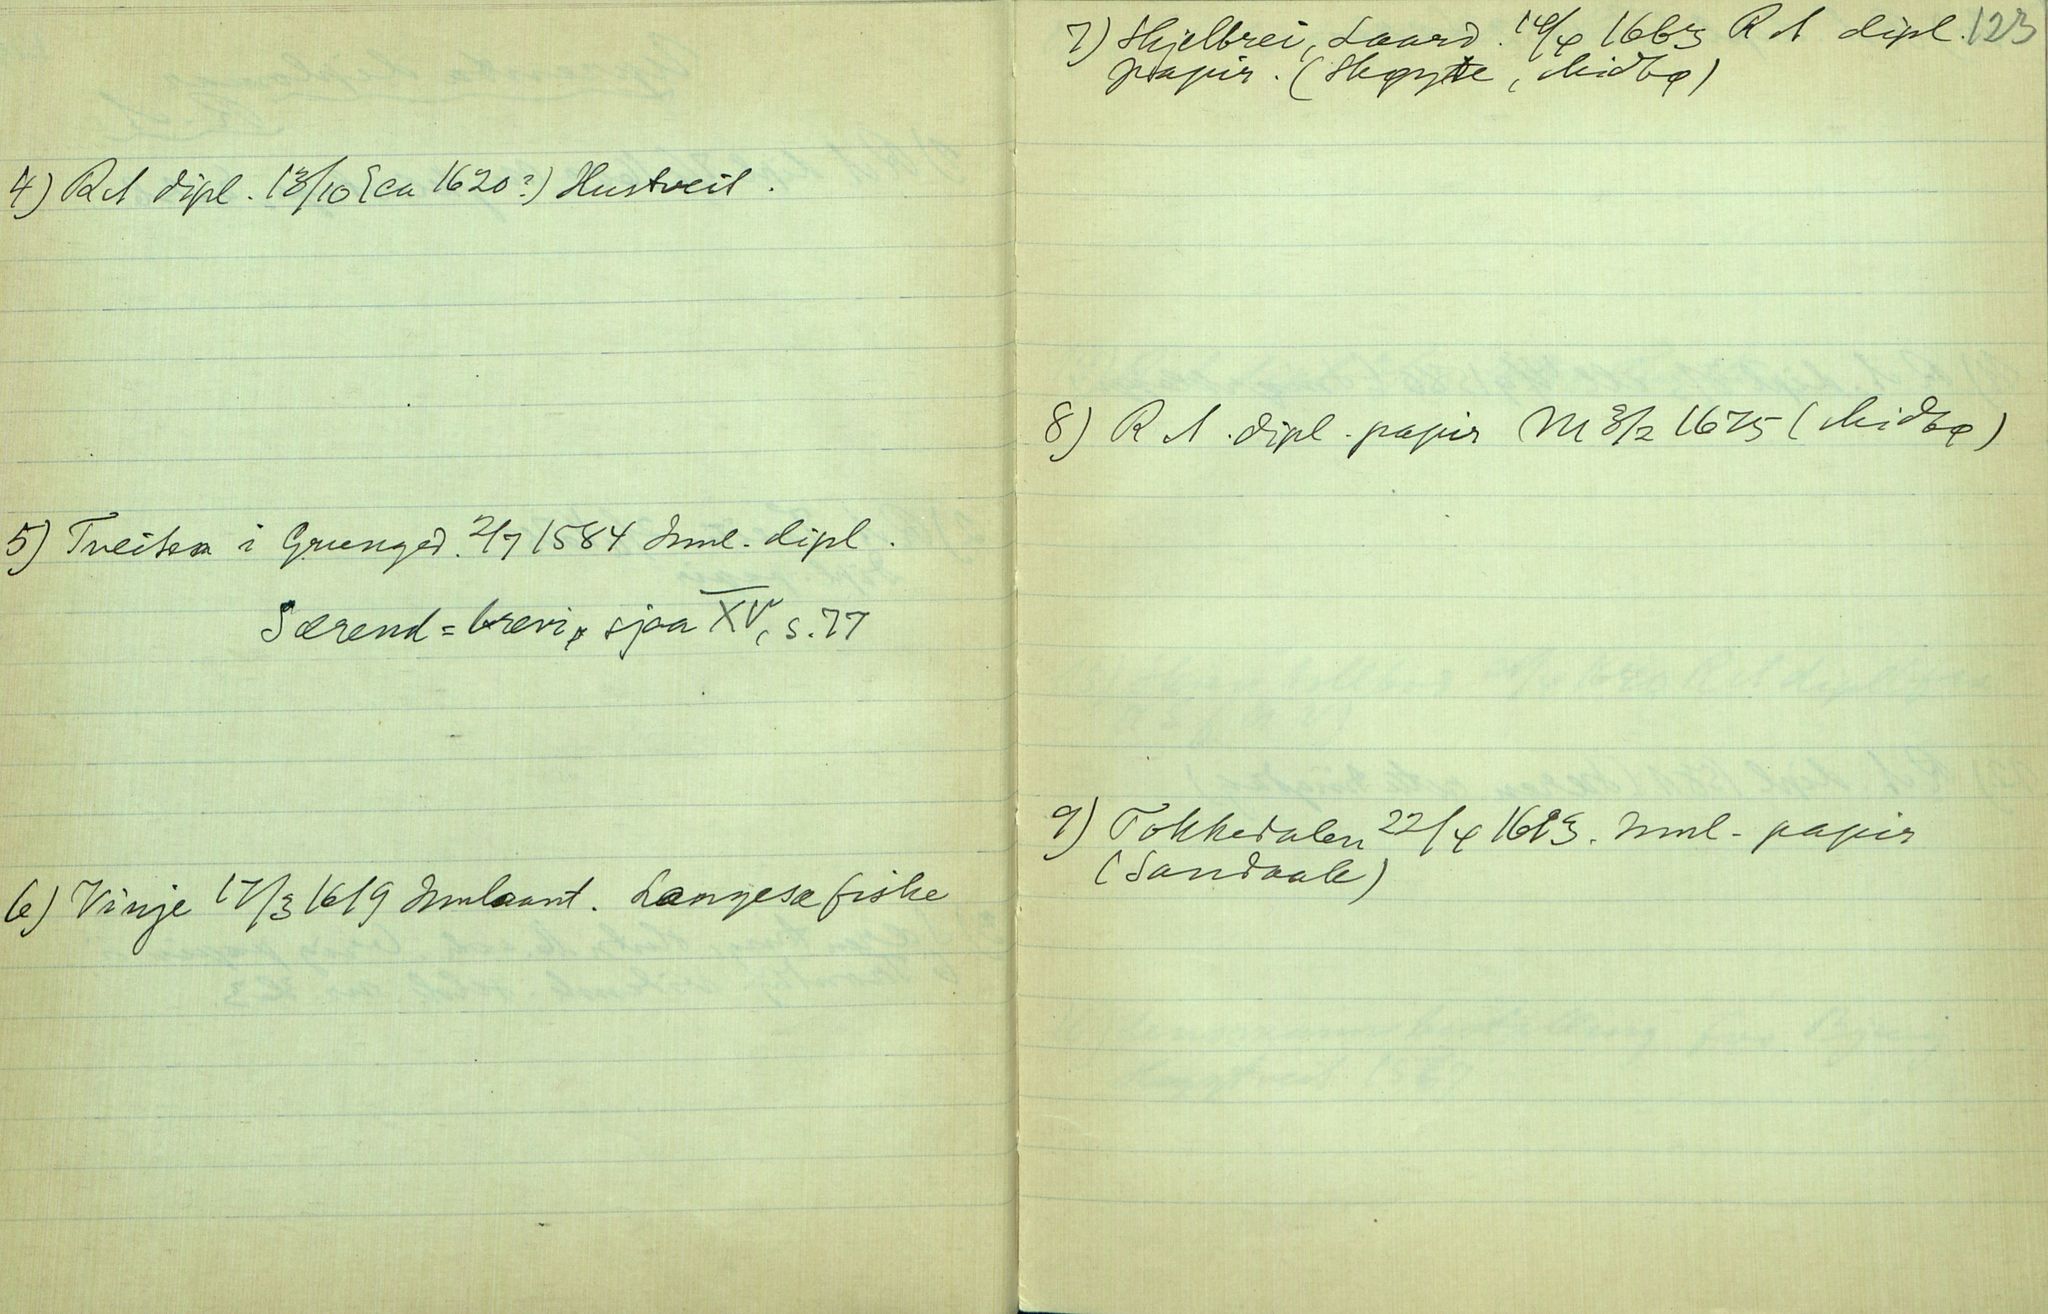 4) RA dipl. 13/10 (ca 1620?) Hustveit.
5) Tveiten i Grunged. 2/7 1584 Innl. dipl.
Særend = brevi, sjaa XV, s. 77
6) Vinje 17/3 1619 Innlaant. Langesæ fiske
123
7) Skjelbrei, Laard. 14/4 1663 RA dipl.
papir. (Skøyte, Midbø)
8) RA. dipl. papir M 3/2 1675 (Midbø)
9) Tokkedalen 22/4 1693. Innl. papir
(Sandaak)